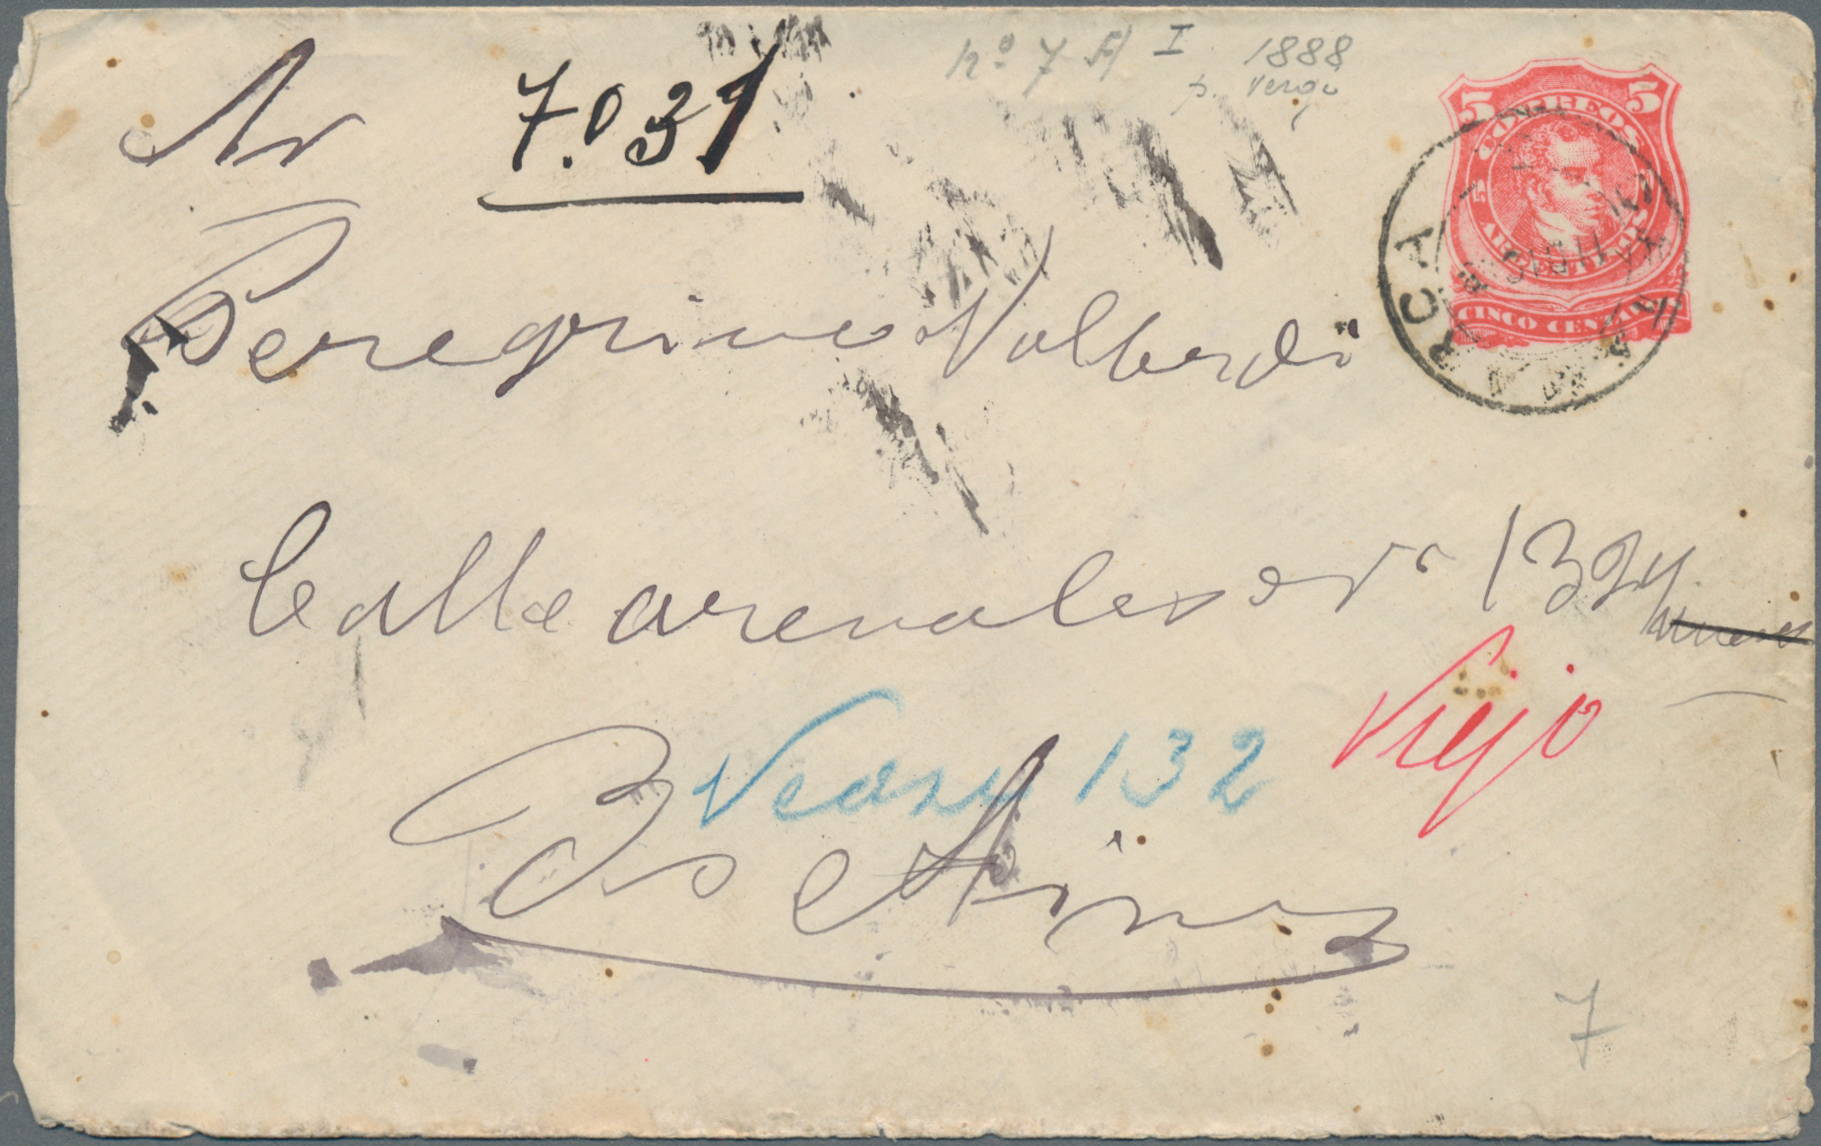 nº 7 A I 1888
7.031
5 CORREOS 5
5
ARGENTINOS
CINCO CENTAVOS
Peregrino Valberdi
Calle arenales nr 1324
nuevo
Viejo
132
Bs Aires
7